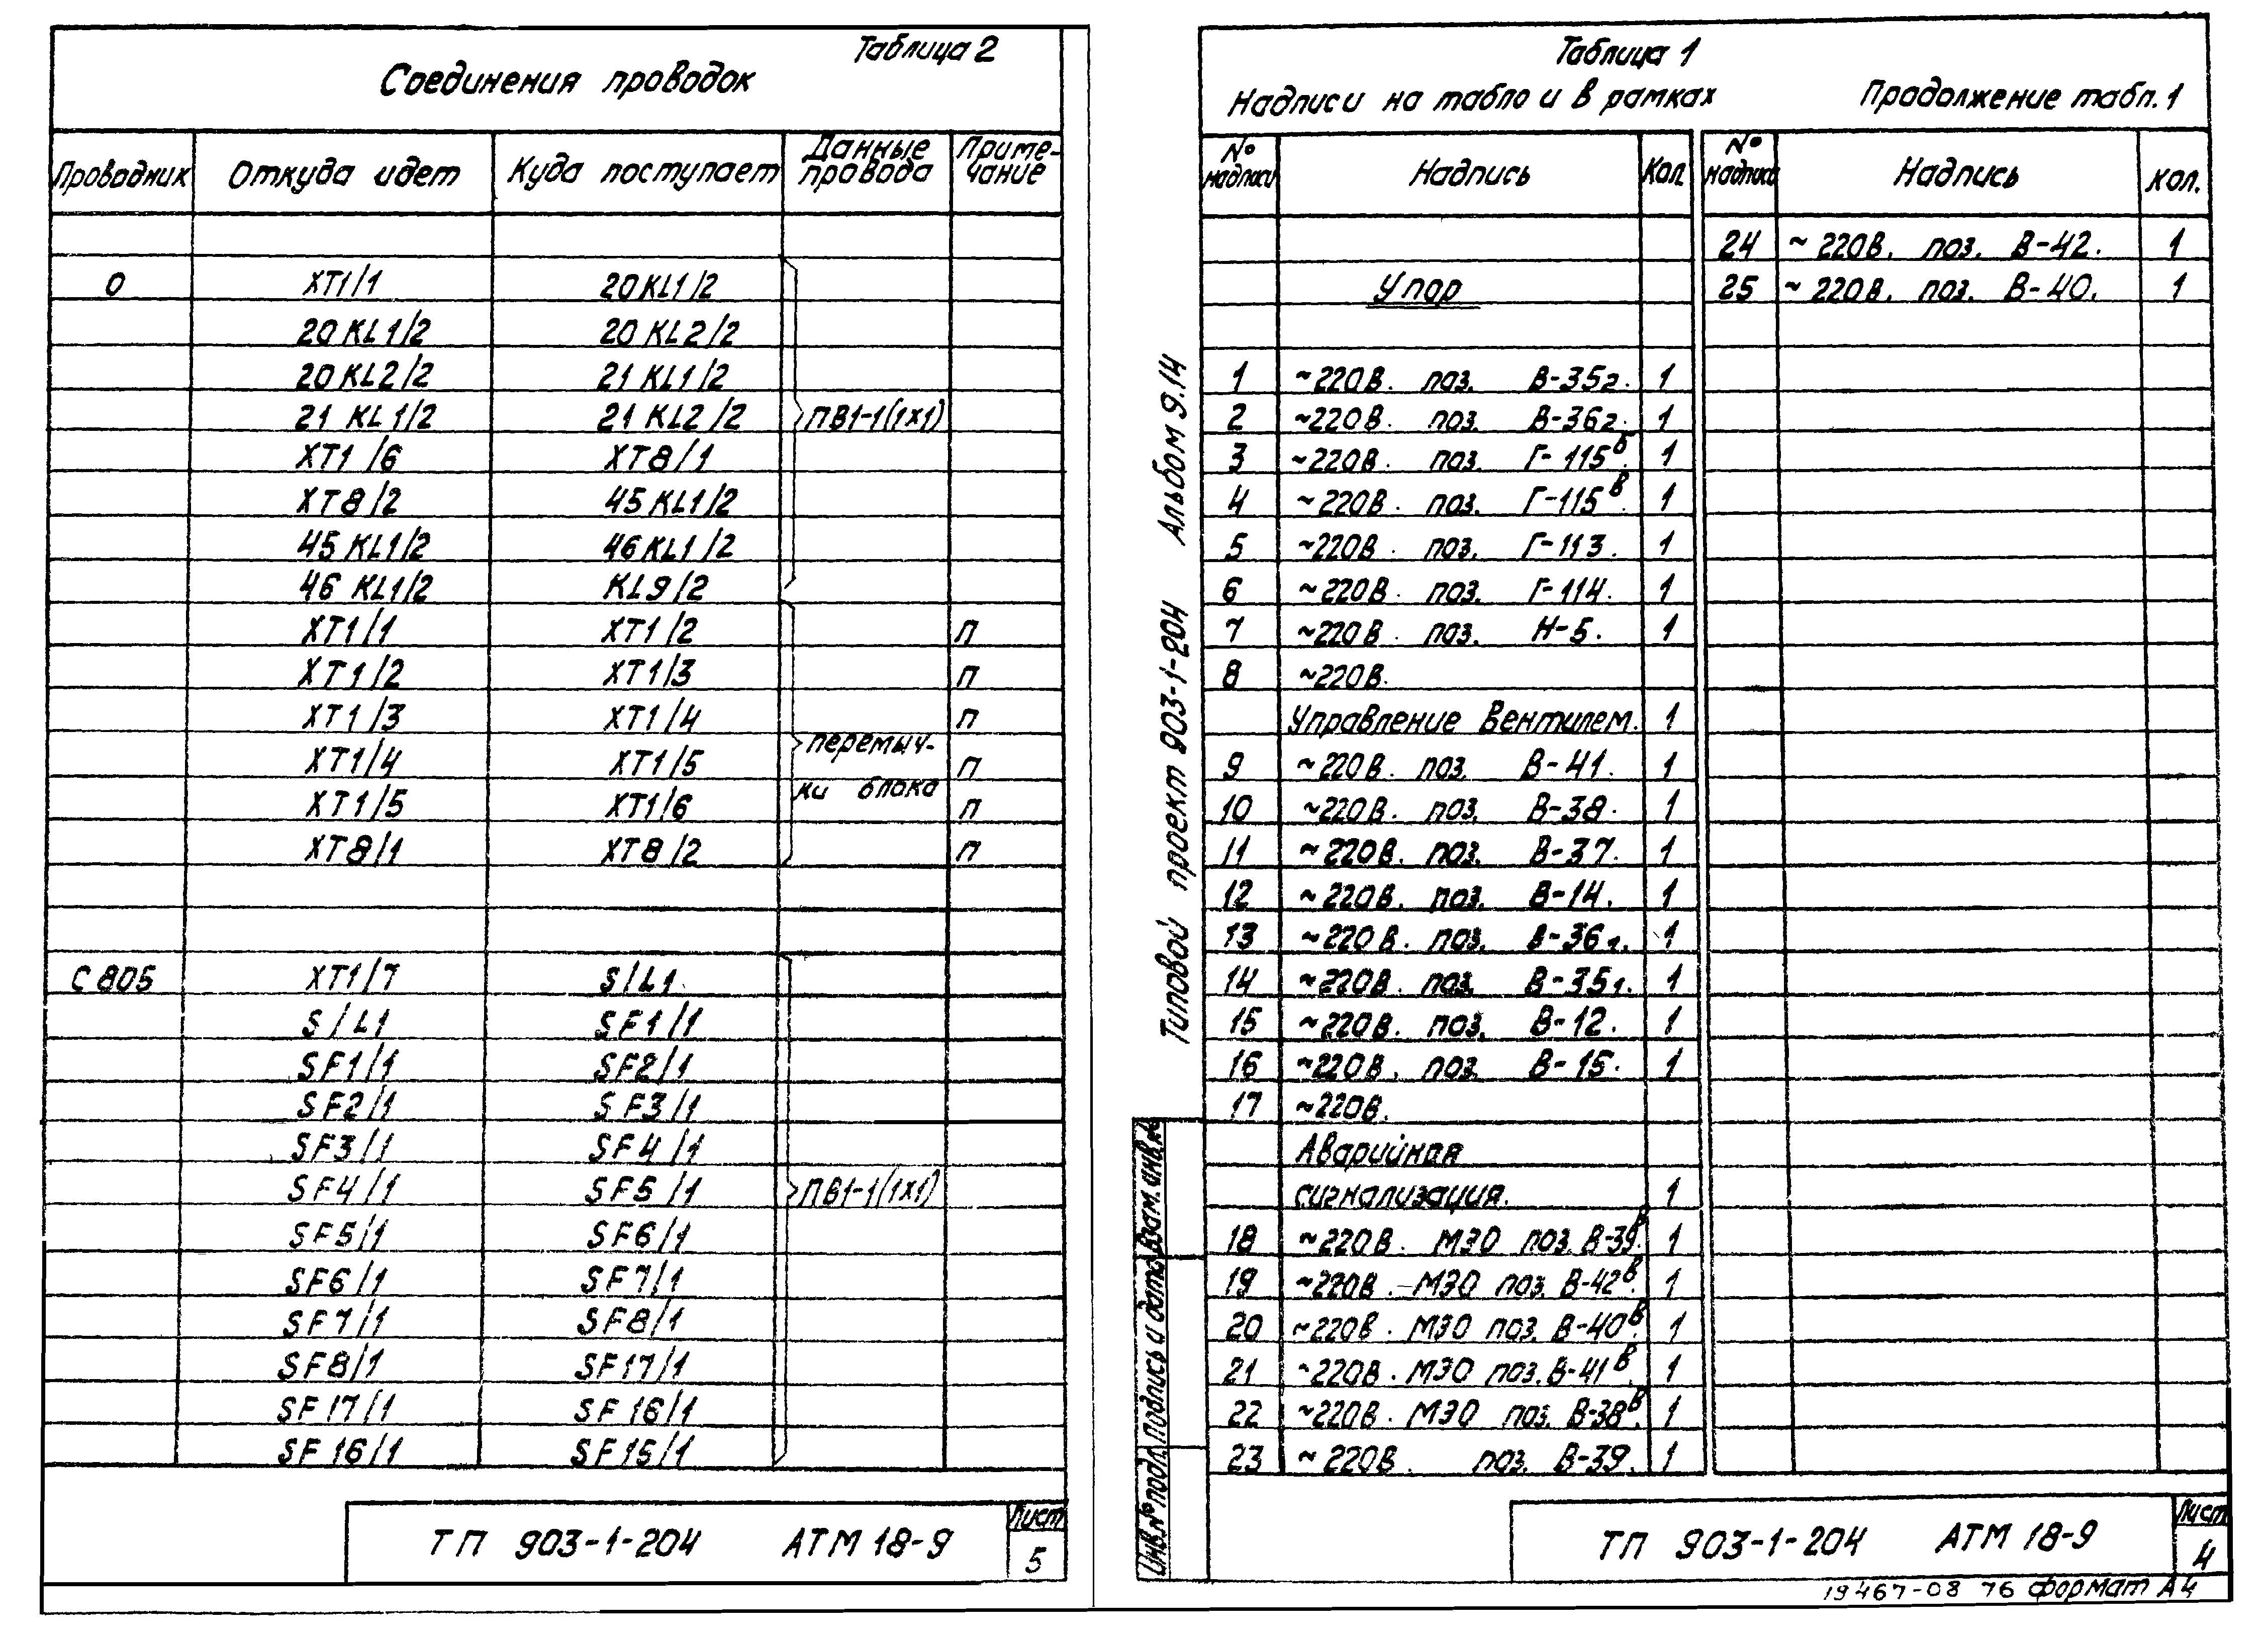 Таблица 2
Соединения проводок
Проводник Откуда идет Куда поступает Данные провода Примечание
0 XT1/1 20KL1/2
20KL1/2 20KL2/2
20KL2/2 21KL1/2
21KL1/2 21KL2/2 ПВ1-1(1х1)
XT1/6 XT8/1
XT8/2 45KL1/2
45KL1/2 46KL1/2
46KL1/2 KL9/2
XT1/1 XT1/2 п
XT1/2 XT1/3 п
XT1/3 XT1/4 п
XT1/4 XT1/5 перемыч- п
XT1/5 XT1/6 ки блока п
XT8/1 XT8/2 п
С805 XT1/7 S/L1
S/L1 SF1/1
SF1/1 SF2/1
SF2/1 SF3/1
SF3/1 SF4/1
SF4/1 SF5/1 ПВ1-1(1х1)
SF5/1 SF6/1
SF6/1 SF7/1
SF7/1 SF8/1
SF8/1 SF17/1
SF17/1 SF16/1
SF16/1 SF15/1
ТП 903-1-204 АТМ 18-9
Лист
5
Таблица 1
Надписи на табло и в рамках Продолжение табл. 1
№ надписи Надпись Кол. № надписи Надпись кол.
Упор
1 ~220В. поз. В-35г. 1
2 ~220В. поз. В-36г. 1
3 ~220В. поз. Г-115б. 1
4 ~220В. поз. Г-115в. 1
5 ~220В. поз. Г-113. 1
6 ~220В. поз. Г-114. 1
7 ~220В. поз. Н-5. 1
8 ~220В.
Управление вентилем. 1
9 ~220В. поз. В-41. 1
10 ~220В. поз. В-38. 1
11 ~220В. поз. В-37. 1
12 ~220В. поз. В-14. 1
13 ~220В. поз. В-36г. 1
14 ~220В. поз. В-35г. 1
15 ~220В. поз. В-12. 1
16 ~220В. поз. В-15. 1
17 ~220В.
Аварийная
сигнализация. 1
18 ~220В. МЭО поз. В-39в. 1
19 ~220В. МЭО поз. В-42в. 1
20 ~220В. МЭО поз. В-40в. 1
21 ~220В. МЭО поз. В-41в. 1
22 ~220В. МЭО поз. В-38в. 1
23 ~220В. поз. В-39. 1
24 ~220В. поз. В-42. 1
25 ~220В. поз. В-40. 1
Типовой проект 903-1-204 Альбом 9.14
Взам. инв.№
Подпись и дата
Инв.№ подл.
ТП 903-1-204 АТМ 18-9
Лист
4
19467-08 76 формат А4